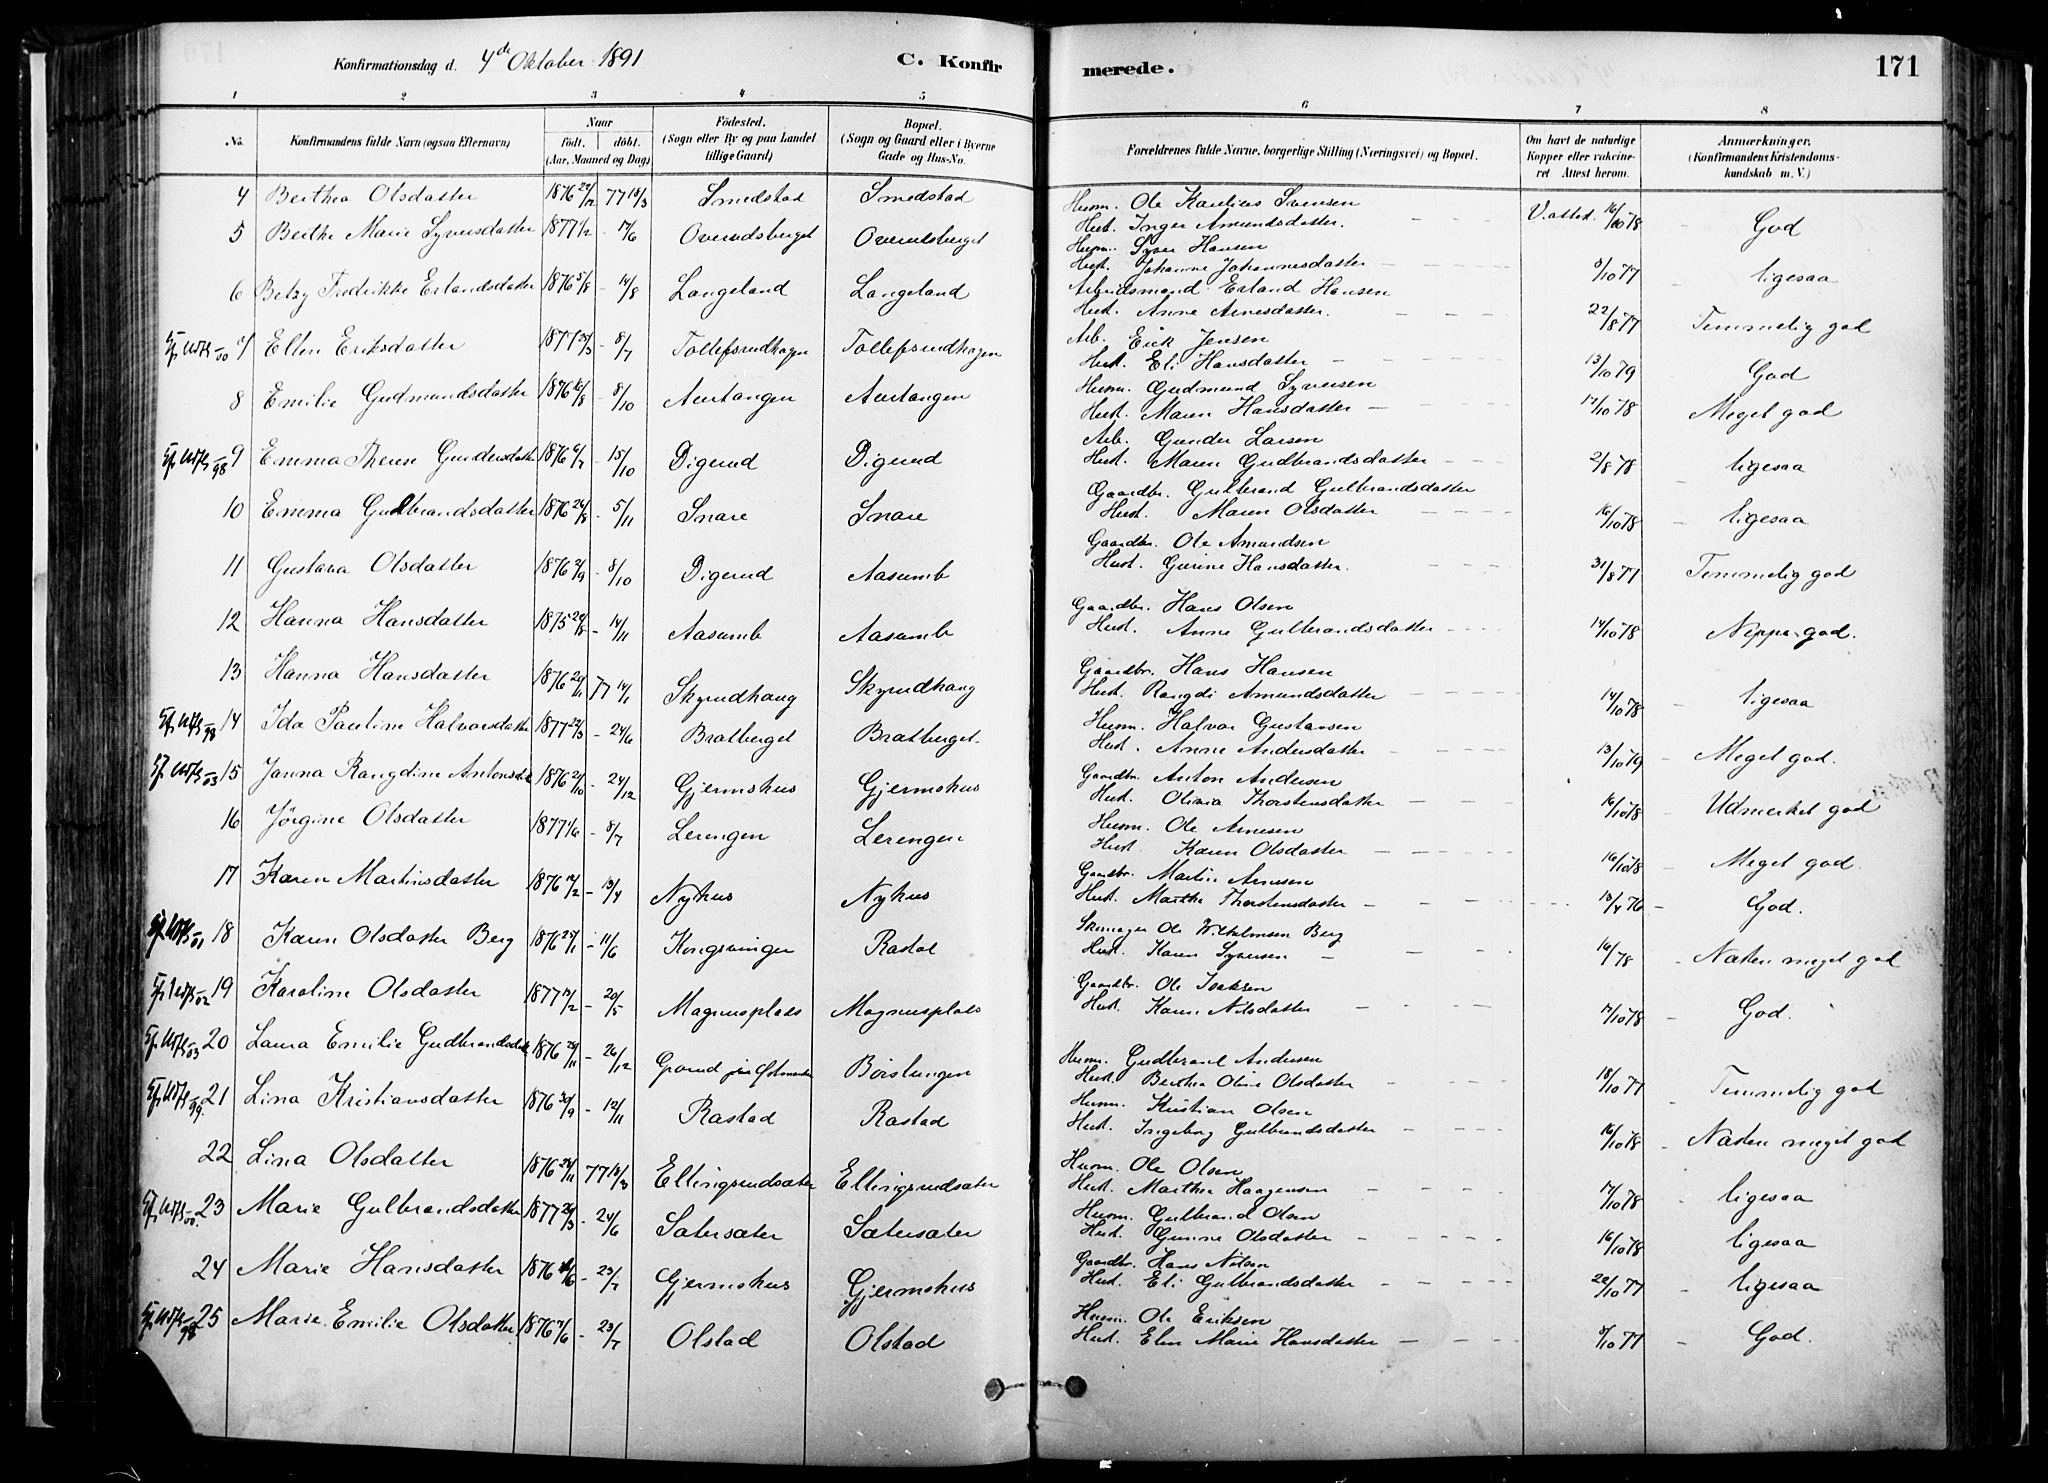 Konfirmationsdag d. 4de Oktober 1891
C. Konfirmerede.
171
1 2 3 4 5 6 7 8
No.
Konfirmandens fulde Navn (ogsaa Efternavn)
Naar
født. døbt.
(Aar, Maaned og Dag)
Fødested.
(Sogn eller By og paa Landet tillige Gaard)
Bopæl.
(Sogn og Gaard eller i Byerne Gade og Hus-No.
Forældrenes fulde Navne, borgerlige Stilling (Næringsvei) og Bopæl.
Om havt de naturlige Kopper eller vakcineret Attest herom.
Anmærkninger.
(Konfirmandens Kristendomskundskab m. V.)
4 Berthea Olsdatter 1876 77 18/3 Smedstad Smedstad Husm. Ole Svensen
Hust. Inger Amundsdatter. V. attest. 16/10 78 God
5 Berthe Marie Syversdatter 1877 1/2 - 17/6 Overudsberget Overudsberget Husm. Syver Hansen
Hust. Johanne Johannesdatter 8/10 77 ligesaa
6 Betzy Fredrikke Erlandsdatter 1876 5/8 - 14/8 Langeland Langeland Arbeidsmand Erland Hansen
Hust. Anne Arnesdatter. 22/8 77 Temmelig god
7 Ellen Eriksdatter 1877 - 8/7 Tollefsrudhagen Tollefsrudhagen Arb. Erick Jensen
Hust. Eli Hansdatter 13/10 79 God
8 Emilie Gudmundsdatter 1876 - 8/10 Aurtangen Aurtangen Husm. Gudmund Syversen
Hust. Maren Hansdatter 17/10 78 Meget god
9 Emma Therese Gundersdatter 1876 - 15/10 Digerud Digerud Arb. Gunder Larsen
Hust. Maren Gudbrandsdatter 2/8 78 ligesaa
10 Emma Gulbrandsdatter 1876 - 5/11 Snare Snare Gaardbr. Gulbrand Gulbrandsdatter
Hust. Maren Olsdatter 16/10 78 ligesaa
11 Gustava Olsdatter 1876 - 8/10 Digerud Aasumb Gaardbr. Ole Amundsen
Hust. Gurine Hansdatter. 31/8 77 Temmelig god
12 Hanna Hansdatter 1875 - 14/11 Aasumb Aasumb Gaardbr. Hans Olsen
Hust. Anne Gulbrandsdatter 14/10 78 Neppe god.
13 Hanna Hansdatter 1876 77 14/1 Skyrudhaug Skyrudhaug Gaardbr. Hans Hansen
Hust. Rangdi Amundsdatter 14/10 78 ligesaa
14 Ida Pauline Halvorsdatter 1877 - 24/6 Bratberget Bratberget. Husm. Halvor Gustavsen
Hust. Anne Andersdatter 13/10 79 Meget god.
15 Janna Rangdine Antonsdatter 1876 - 24/12 Gjermshus Gjermshus Gaardbr. Anton Andersen
Hust. Olivia Thorstensdatter 16/10 78 Udmerket god
16 Jørgine Olsdatter 1877 - 8/7 Lerengen Lerengen Husm. Ole Arnesen
Hust. Karen Olsdatter 16/10 78 Meget god.
17 Karen Martinsdatter 1876 - 13/4 Nyhus Nyhus Gaardbr. Martin Arnesen
Hust. Marthe Thorstensdatter 13/4 76 God.
18 Karen Olsdatter Berg 1876 - 11/6 Kongsvinger Rastad Skomager Ole Wilhelmsen Berg
Hust. Karen Syversen 16/78 Næsten meget god
19 Karoline Olsdatter 1877 - 20/5 Magnusplads Magnusplads Gaardbr. Ole Isaksen
Hust. Karen Nilsdatter 17/10 78 God.
20 Laura Emilie Gudbrandsdatter 1876 - 26/12 Grorud Børslungen Husm. Gudbrand Andersen
Hust. Berthea Oline Olsdatter 18/10 77 Temmelig god
21 Lina Kristiansdatter 1876 30/9 - 12/11 Rastad Rastad Husm. Kristian Olsen
Hust. Ingeborg Gulbrandsdatter 16/10 78 Næsten meget god
22 Lina Olsdatter 1876 77 18/3 Ellingsrudsæter Ellingsrudsæter Husm. Ole Olsen
Hust. Marthea Haagensen 17/10 78 ligesaa
23 Marie Gulbrandsdatter 1877 - 24/6 Sætersæter Sætersæter Husm. Gulbrand Olsen
Hust. Gurine Olsdatter 16/10 78 ligesaa
24 Marie Hansdatter 1876 - 23/7 Gjermshus Gjermshus Gaardbr. Hans Nilsen
Hust. Eli Gulbrandsdatter 22/10 77 ligesaa
25 Marie Emilie Olsdatter 1876 - 23/7 Olstad Olstad Husm. Ole Eriksen
Hust. Elen Marie Hansdatter 8/10 77 God.